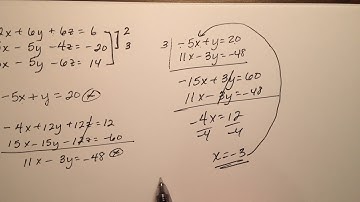 2x + 6y + 6z = 6 ] 2
x - 5y - 4z = -20 ] 3
x - 5y - 6z = 14
-5x + y = 20 *
-4x + 12y + 12z = 12
15x - 15y - 12z = -60
11x - 3y = -48 *
3 | -5x + y = 20
11x - 3y = -48
-15x + 3y = 60
11x - 3y = -48
-4x = 12
-4 -4
x = -3